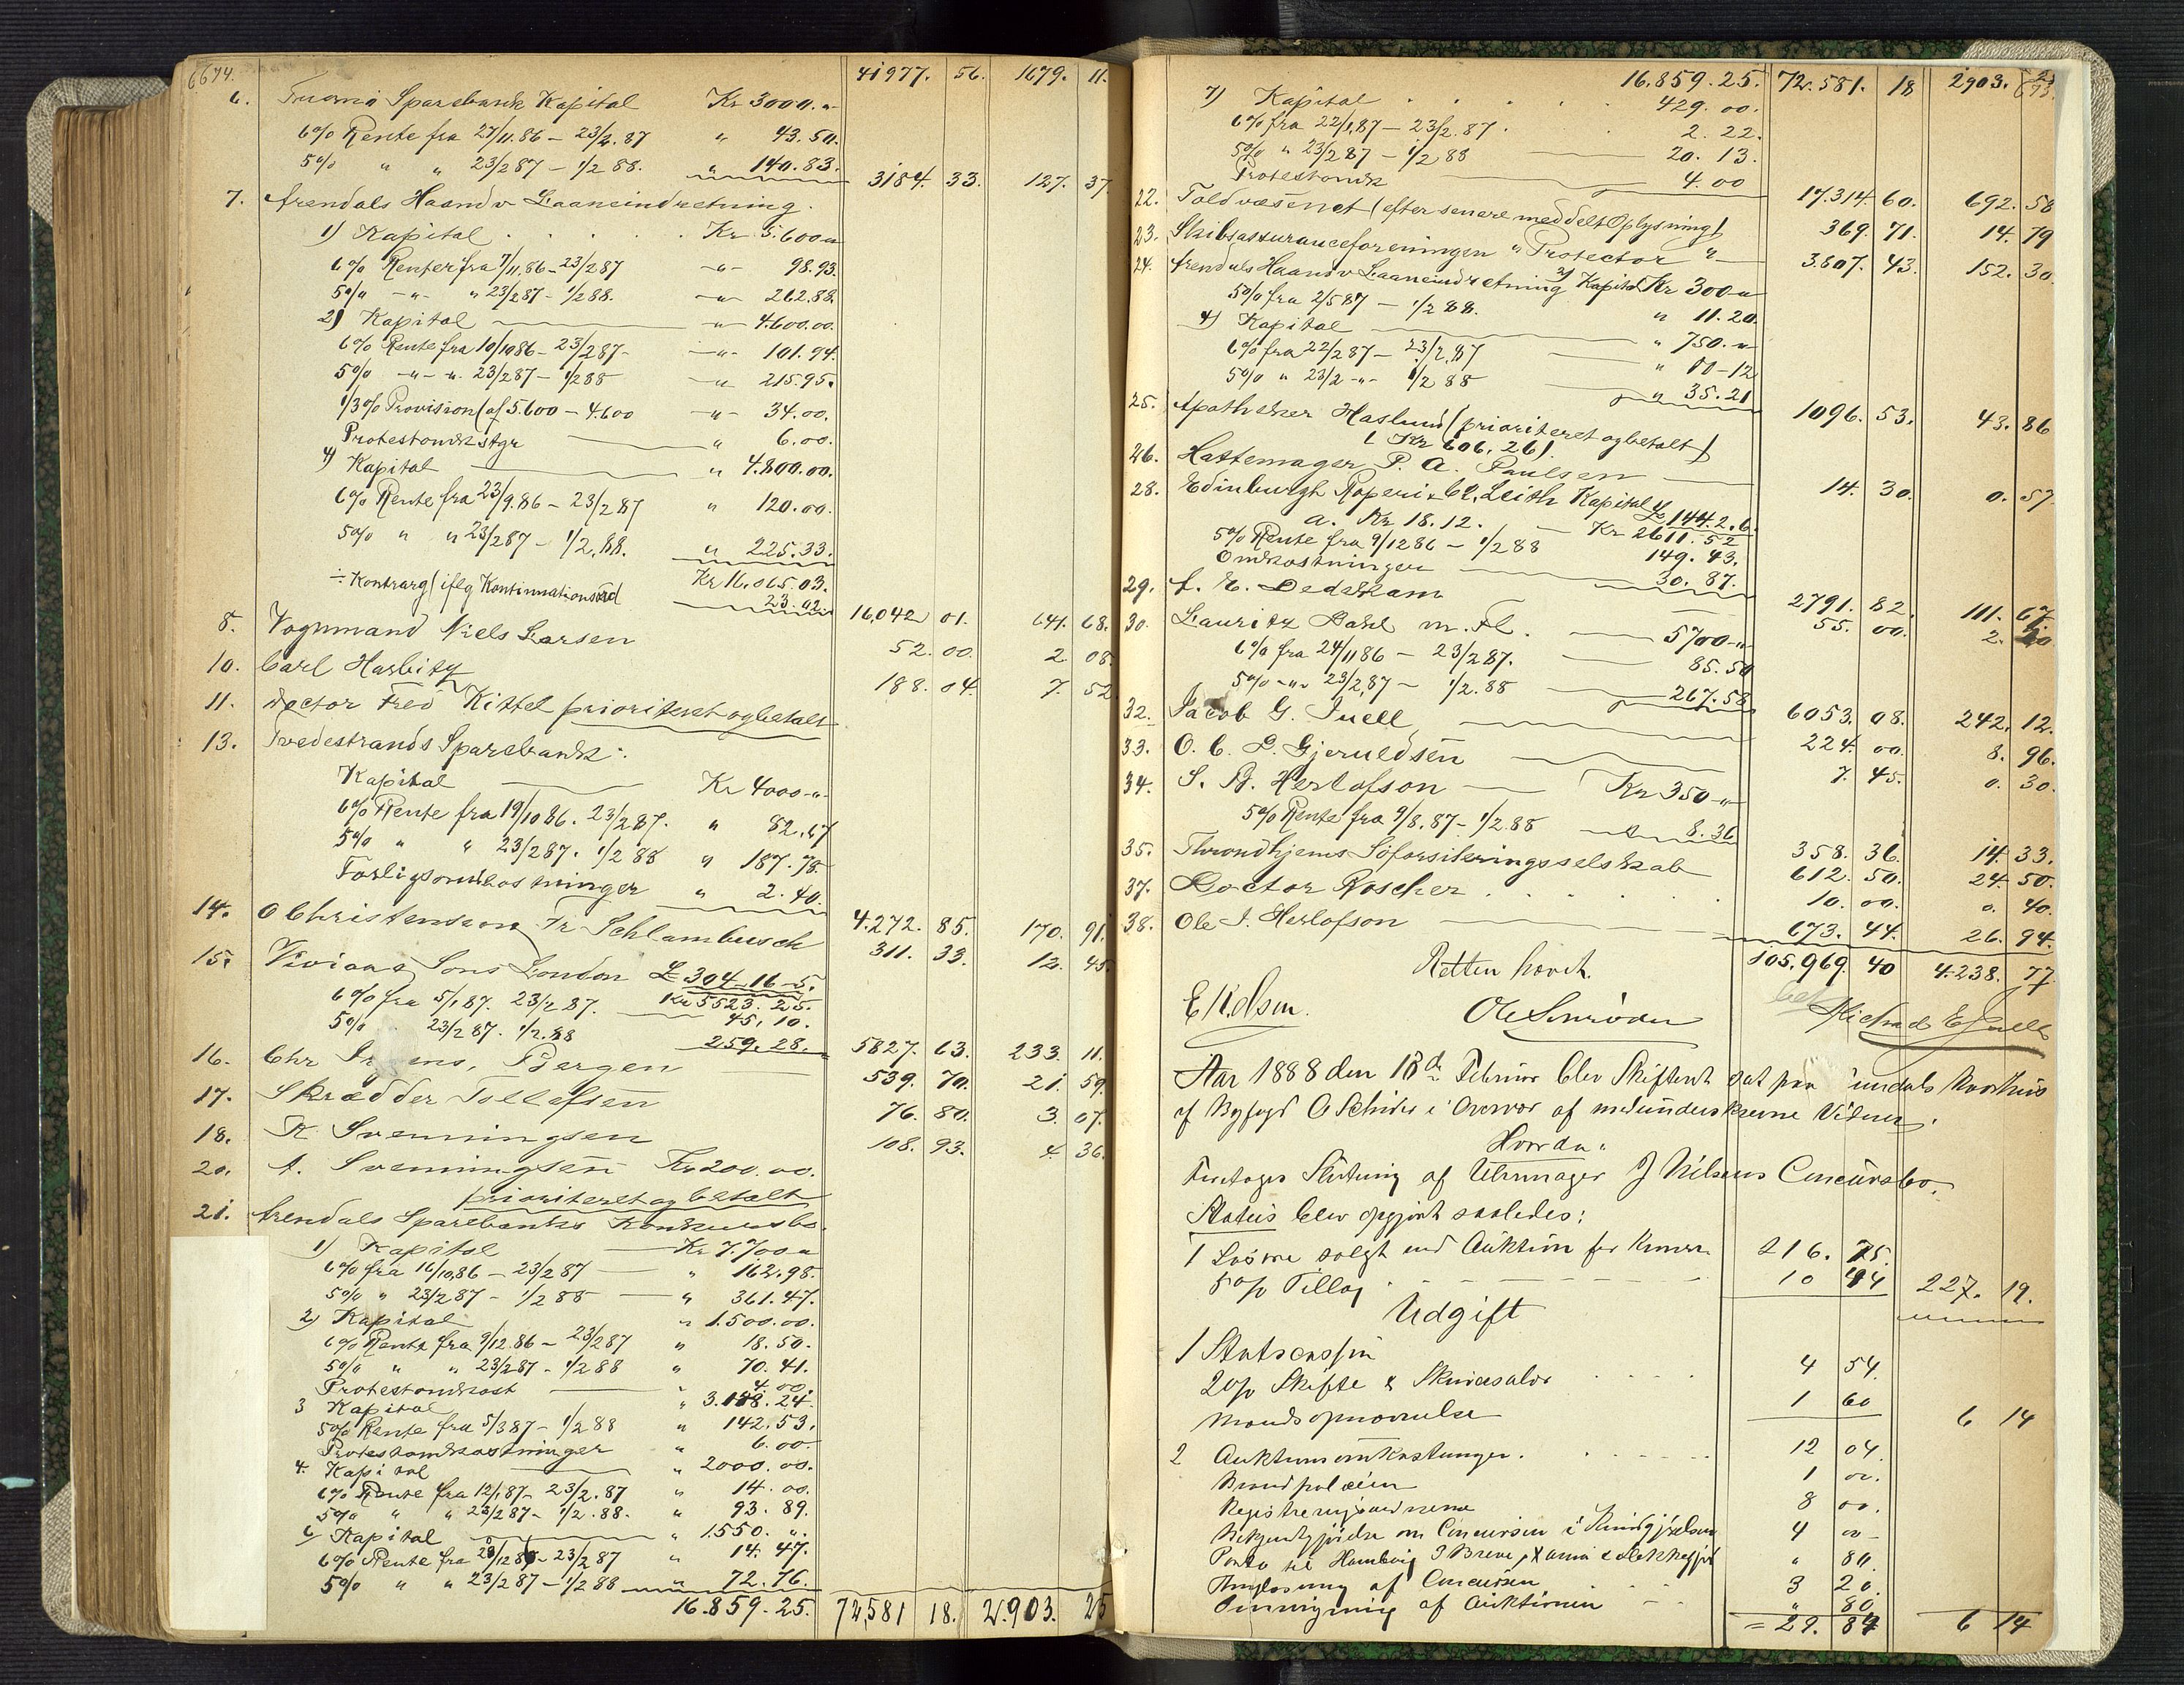 6674. 41977. 56. 1679. 11.
6. Tromø Sparebank Kapital Kr 3000.„
6% Rente fra 27/11.86 – 23/2.87 „ 43.50.
5% „ „ 23/287 – 1/2 88. „ 140.83. 3184. 33. 127. 37
7. Arendals Haandv Laaneindretning.
1) Kapital . . . . . Kr 5.600„
6% Renter fra 7/11.86 – 23/287 –„– 98.93.
5% –„– „ 23/287 – 1/288. –„– 262.88.
2) Kapital –„– 4.600.00.
6% Rente fra 10/1086 – 23/287– –„– 101.94.
5% –„–„. 23/287 – 1/288 –„– 215.95.
1/3% Provision (af 5.600 – 4.600 –„– 34.00.
Protestomkstgr „ 6.00.
4) Kapital „ 4.800.00.
6% Rente fra 23/9.86 – 23/287 „ 120.00.
5% „ „ 23/287 – 1/2.88. „ 225.33.
Kr 16.065.03.
÷ Kontrarg (iflg Kontinuationsød 23.02 16.042 01. 641. 68.
8. Vognmand Niels Larsen 52. 00. 2 08
10. Carl Harbitz 188. 04. 7. 52
11. Doctor Fred Kittel prioriteret og betalt
13. Tvedestrands Sparebank:
Kapital Kr 4000–„–
6% Rente fra 19/1086. 23/287. „ 82.67
5% „ „ 23/287. 1/288 „ 187.78.
Forligsomkostninger „ 2.40. 4.272. 85. 170. 91.
14. O Christensen Fr Schlambusch 311. 33. 12. 45
15. Vivians Sons London £ 304–16–5.
Kr 5523.25.
6% fra 5/187. 23/287. 45.10.
5% 23/287. 1/2.88 259.28. 5827. 63. 233. 11.
16. Chr Irgens, Bergen 539. 70. 21. 59
17. Skrædder Tollefsen 76. 80. 3. 07.
18. K Svenningsen 108. 93. 4. 36.
20. A. Svenningsen Kr 200.00.
prioriteret og betalt
21. Arendals Sparebanks Konkursbo.
1) Kapital Kr 7.700„
6% fra 16/10.86 – 23/287 „ 162.98.
5% „ 23/287 – 1/288 „ 361.47.
2) Kapital „ 1.500.00.
6% Rente fra 9/12.86 – 23/287 „ 18.50.
5% „ „ 23/287 – 1/288 „ 70.41.
Protestomkost „ 4.00.
3 Kapital „ 3.118.24.
5% Rente fra 5/387 – 1/288 „ 142.53.
Protestomkostninger „ 6.00.
4. Kapital „ 2000.00.
6% Rente fra 12/187– 23/2.87 „ 14.00.
5% „ „ 23/287– 1/2.88. „ 93.89.
6 Kapital „ 1.550. „.
6% Rente fra 28/1286– 23/287 „ 14.47.
5% „ „ 23/287 – 1/288 „ 72.76.
16.859.25. 72,581 18. 2.903. 25
16.859.25. 72.581. 18 2903. 25
7) Kapital . . . . 429.00.
6% fra 22/1.87 – 23/2.87. 2.22.
5% „ 23/287 – 1/288 20.13.
Protestomk 4.00 17.314 60. 692. 58
22. Toldvæsenet (efter senere meddelt Oplysning) 369. 71. 14. 79
23. Skibsassuranceforeningen „Protector„ 3.807. 43. 152. 30.
24. Arendals Haandv Laaneindretning 3) Kapital Kr 300„
5% fra 2/587 – 1/288. „ 11.20.
4) Kapital „ 750.„
6% fra 22/287 – 23/2.87 „ 00–12
5% „ 23/2 –„– 1/288 „ 35.21 1096. 53. 43. 86
25. Apotheker Haslund (prioriteret og betalt)
(Kr 606,26).
26. Hattemager P. A. Paulsen 14. 30. 0. 57
28. Edinburgh Roperi & Co, Leith Kapital £ 144.2.6.
a. Kr 18.12. Kr 2611.52
5% Rente fra 9/1286 – 1/288 149.43.
Omkostninger 30.87. 2791. 82. 111. 67.
29. A. E. Dedekam 55. 00. 2. 20
30. Lauritz Dahl m. Fl. 5700–„
6% fra 24/1186 – 23/287. 85.50
5% –„– 23/2.87 – 1/2.88 267.58 6053. 08. 242. 12.
32. Jacob G. Juell 224. 00. 8. 96.
33. O. C. L. Gjeruldsen 7. 45. 0. 30.
34. S. B. Herlofson Kr 350–„
5% Rente fra 9/8.87– 1/2.88 8.36 358. 36. 14. 33.
35. Throndhjems Söforsikringsselskab 612. 50. 24. 50.
37. Doctor Roscher . . . . 10. 00. 0. 40.
38. Ole J. Herlofson 673. 44. 26. 94.
105.969. 40 4.238. 77
Retten hævet.
Aar 1888 den 18de Februar blev Skifteret sat paa Arendals Raadhus
af Byfogd i Overvær af medunderskrevne Vidner.
Hvorda:
Foretoges Slutning af Uhrmager J Nilsens Concursbo.
Status blev opgjort saaledes:
1 Løsøre solgt ved Auktion for Kroner 216. 75.
5% Tillæg 10 44 227. 19.
Udgift
1 Statscassen
2% Skifte & 4 54.
1 60 6 14
2 Auktionsomkostninger. 12 04.
1 00.
8 00.
Bekjendtgjörelse om Concursen i 4 00–
Porto til Hamborg 3 Breve „ 80.
af Concursen 3 20.
af Auktionen „ 80.
= 29. 84 6 14